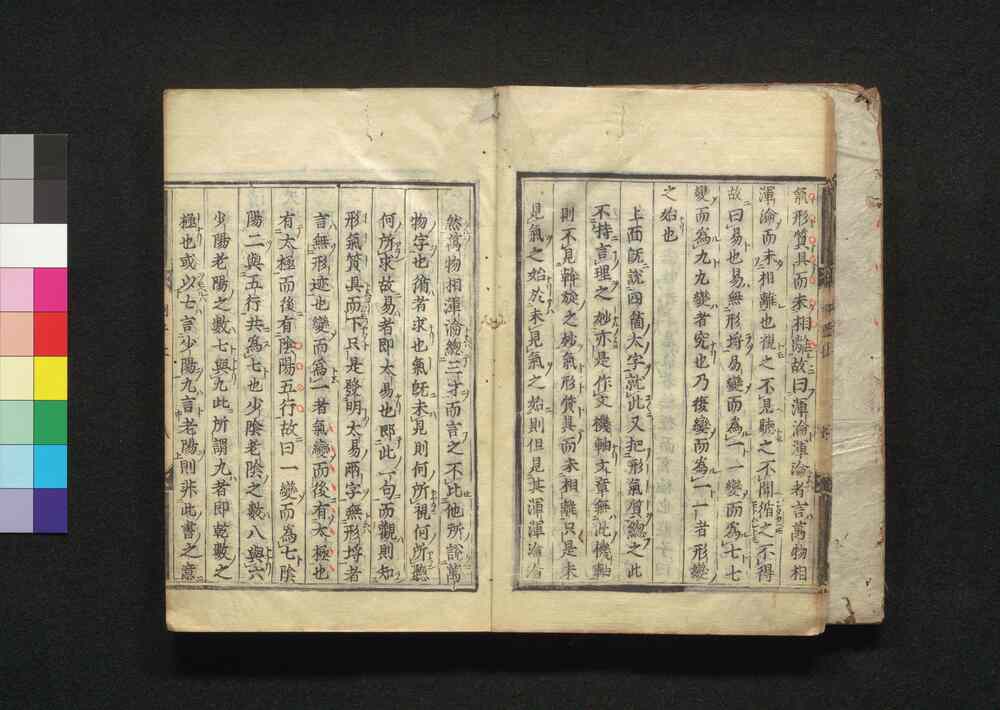 氣形質具而未相離故曰渾淪渾淪者言萬物相
渾淪而未相離也視之不見聽之不聞循之不得
故曰易也易無形埒易變而為一一變而為七七
變而為九九變者究也乃復變而為一一者形變
之始也
上面既說四箇大字就此又把形氣質總之此
不特言理之妙亦是作文機軸文章無此機軸
則不見斡旋之妙氣形質具而未相離只是未
見氣之始於未見氣之始則但見其渾渾淪淪
然萬物相渾淪總三才而言之不比他所說萬
物字也循者求也氣既未見則何所視何所聽
何所求故易者即太易也即此一句而觀則知
形氣質具而下只是發明太易兩字無形埒者
言無形迹也變而為一者氣變而後有太極也
有太極而後有陰陽五行故曰一變而為七陰
陽二與五行共為七也少陰老陰之數八與六
少陽老陽之數七與九此所謂九者即乾數之
極也或以七言少陽九言老陽則非此書之意